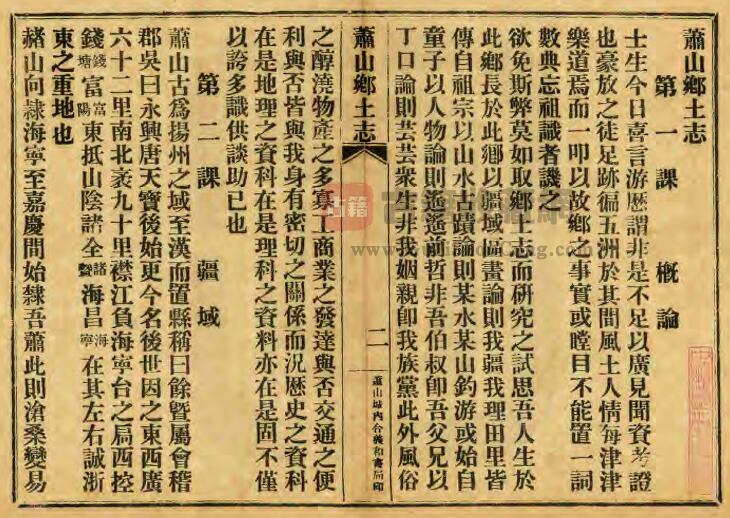 蕭山鄉土志
第一課　概論
士生今日喜言游歷謂非是不足以廣見聞資考證
也豪放之徒足跡徧五洲於其間風土人情每津津
樂道焉而一叩以故鄉之事實或瞠目不能置一詞
數典忘祖識者譏之
欲免斯弊莫如取鄉土志而硏究之試思吾人生於
此鄉長於此鄉以疆域區畫論則我疆我理田里皆
傳自祖宗以山水古蹟論則某水某山釣游或始自
童子以人物論則遙遙前哲非吾伯叔卽吾父兄以
丁口論則芸芸衆生非我姻親卽我族黨此外風俗
蕭山鄉土志
二
蕭山城內合義和書局印
之醇澆物產之多寡工商業之發達與否交通之便
利與否皆與我身有密切之關係而況歷史之資科
在是地理之資科在是理科之資料亦在是固不僅
以誇多識供談助已也
第二課　疆域
蕭山古爲揚州之域至漢而置縣稱曰餘暨屬會稽
郡吳曰永興唐天寶後始更今名後世因之東西廣
六十二里南北袤九十里襟江負海寧台之扃西控
錢錢塘富富陽東抵山陰諸全諸暨海昌海寧在其左右誠浙
東之重地也
赭山向隸海寧至嘉慶間始隸吾蕭此則滄桑變易
古籍